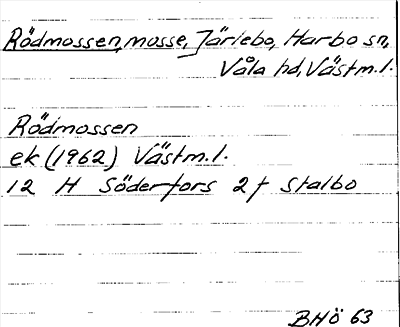 Rödmossen, mosse, Järlebo, Harbo sn,
Våla hd, Västm.l.
Rödmossen
ek (1962) Västm.l.
12 H Söderfors 2 f Stalbo
BHÖ 63